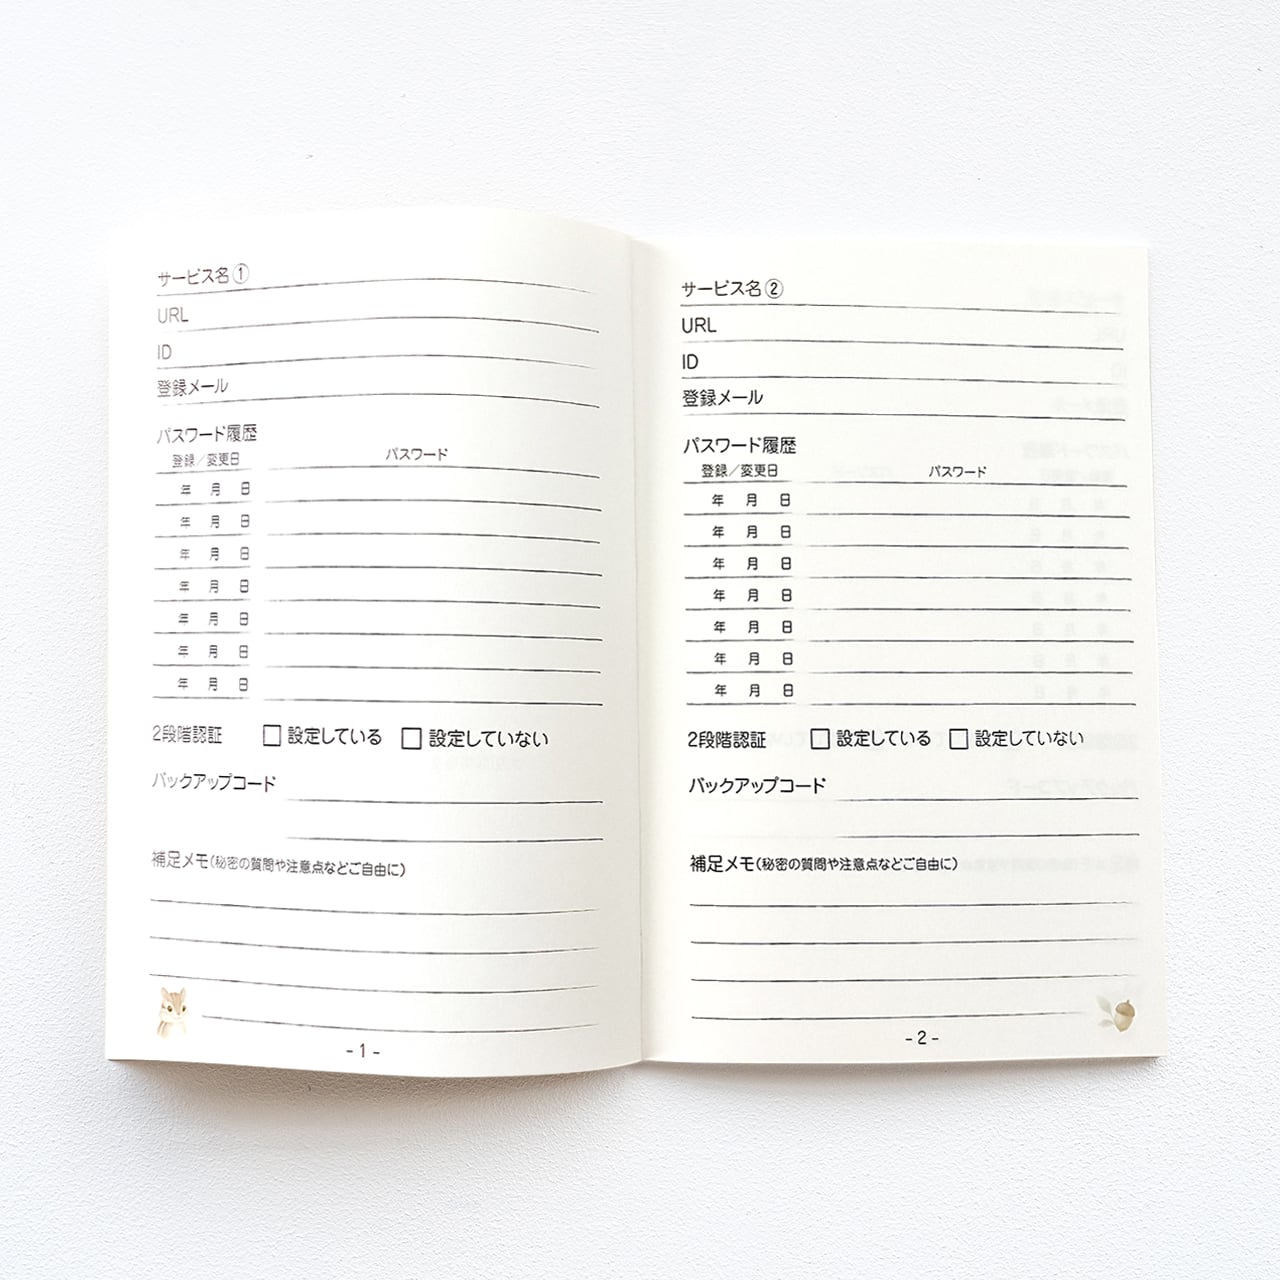 サービス名①
URL
ID
登録メール
パスワード履歴
登録／変更日 パスワード
年 月 日
年 月 日
年 月 日
年 月 日
年 月 日
年 月 日
年 月 日
2段階認証 □設定している □設定していない
バックアップコード
補足メモ(秘密の質問や注意点などご自由に)
- 1 -
サービス名②
URL
ID
登録メール
パスワード履歴
登録／変更日 パスワード
年 月 日
年 月 日
年 月 日
年 月 日
年 月 日
年 月 日
年 月 日
2段階認証 □設定している □設定していない
バックアップコード
補足メモ(秘密の質問や注意点などご自由に)
- 2 -